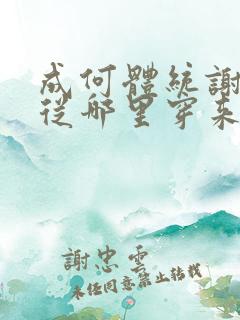 成何體統謝
從哪里穿來
謝忠雲
未經同意禁止轉載